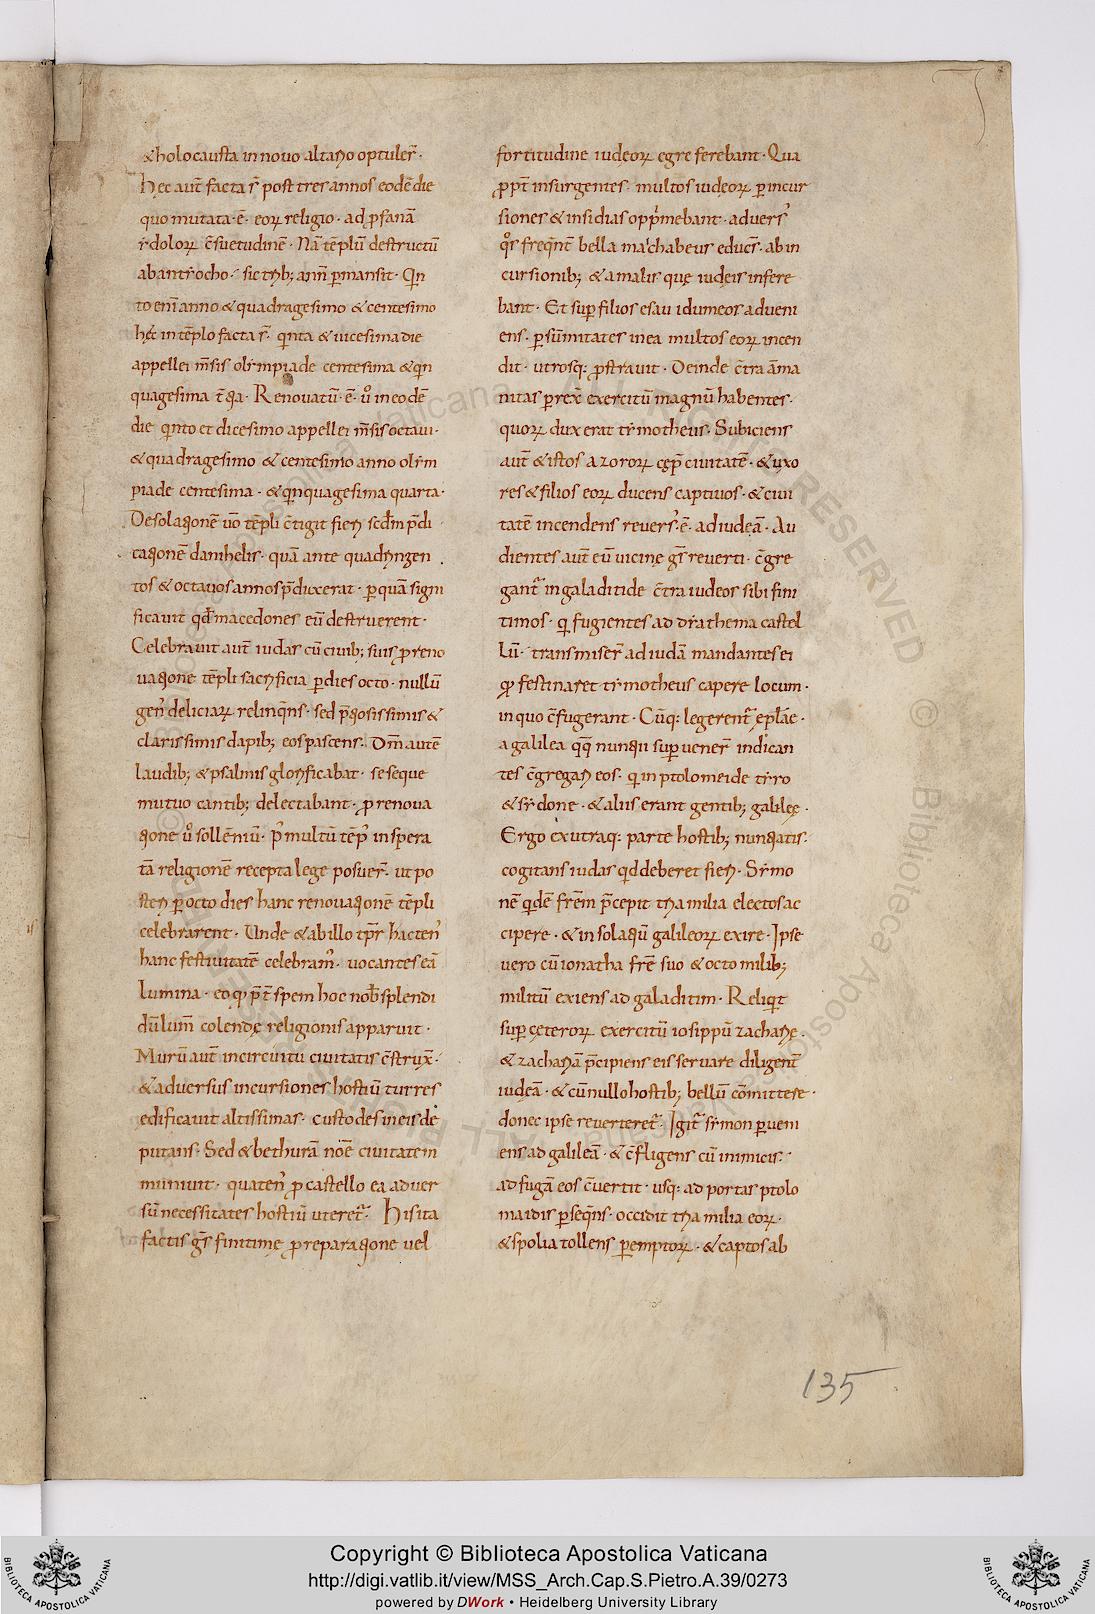 & holocausta in nouo altario optuler̄·
Hec aut̄ facta s̄ post tres annos eodē die
quo mutata·ē· eoꝝ religio· ad ꝓfanā
& doloꝝ c̄suetudinē· Nā tēplū destructū
ab antiocho· sic trib; annis permansit· Qin
to eni anno & quadragesimo & centesimo
hęc in tēplo facta s̄· qinta & uicesima die
appellei m̄sis olimpiade centesima & qin
quagesima t̄cia· Renouatū·ē· ū in eodē
die qinto et dicesimo appellei m̄sis octaui·
& quadragesimo & centesimo anno olim
piade centesima· & qinquagesima quarta·
Desolationē ūo tēpli c̄tigit fieri scd̄m p̄di
cationē danihelis· quā ante quadringen
tos & octauos annos p̄dixerat· ꝑ quā signi
ficauit qd̄ macedones eū destruerent·
Celebrauit aut̄ iudas cū ciuib; suis ꝓ reno
uatione tēpli sacrificia ꝑ dies octo· nullū
gen᾽ deliciaꝝ relinqns· sed p̄tiosissimis &
clarissimis dapib; eos pascens· Dm̄ autē
laudib; & psalmis glorificabat· seseque
mutuo cantib; delectabant· ꝓ renoua
tione ū sollēniū· p᾽ multū tēp᾽ inspera
tā religionē recepta lege posuer̄· ut po
steri ꝑ octo dies hanc renouationē tēpli
celebrarent· Unde & ab illo tp̄r hacten᾽
hanc festiuitatē celebram᾽· uocantes eā
lumina· eo qđ p̄t̄ spem hoc nob̄ splendi
dū lum̄ colendę religionis apparuit·
Murū aut̄ in circuitu ciuitatis c̄strux̄·
& aduersus incursiones hostiū turres
edificauit altissimas· custodes in eis de
putans· Sed & bethurā nōē ciuitatem
muniuit· quaten᾽ ꝓ castello ea aduer
sū necessitates hostiū uteret᾽· His ita
factis gs̄ finitimę ꝓ reparatione uel
fortitudine iudęoꝝ egre ferebant· Qua
ꝓpt̄ insurgentes· multos iudeoꝝ ꝑ incur
siones & insidias opp̄mebant· aduers᾽
qos freqnt̄ bella machabeus educs̄· ab in
cursionib; & a malis quę iudęis infere
bant· Et sup filios esau idumeos adueni
ens· ꝑ sūmitates in ea multos eoꝝ incen
dit· utrosq: ꝓstrauit· Deinde c̄tra ama
nitas ꝑrex̄ exercitū magnū habentes·
quoꝝ dux erat timotheus· Subiciens
aut̄ & istos azororꝝ cęp̄ ciuitatē· & uxo
res & filios eoꝝ ducens captiuos· & ciui
tatē incendens reuers᾽·ē· ad iudęā· Au
dientes aut̄ eū uicinę gs̄ reuerti· c̄gre
gant᾽ in galaditide c̄tra iudeos sibi fini
timos· qi fugientes ad diathema castel
lū· transmiser̄ ad iudā mandantes ei
qđ festinaret timotheus capere locum·
in quo c̄fugerant· Cūq: legerent᾽ epl̄ae·
a galilea qq̄ nuntii superuener̄ indican
tes c̄gregari eos· qi in ptolomeide tiro
& sidone· & aliis erant gentib; galilęę·
Ergo ex utraq: parte hostib; nuntiatis·
cogitans iudas qid deberet fieri· Simo
nē qidē frēm p̄cepit tria milia electos ac
cipere· & in solatiū galileoꝝ exire· Ipse
uero cū ionatha fr̄e suo & octo milib;
militū exiens ad galaditim· Reliqit
sup cęteroꝝ exercitū iosippū zacharię·
& zachariā p̄cipiens eis seruare diligent̄
iudęā· & cū nullo hostib; bellū cōmittere·
donec ipse reuerteret᾽· Igit᾽ simon ꝑueni
ens ad galileā· & c̄fligens cū inimicis·
ad fugā eos c̄uertit· usq: ad portas ptolo
maidis ꝑseqns· occidit tria milia eoꝝ·
& spolia tollens ꝑemptoꝝ· & captos ab
135
Copyright © Biblioteca Apostolica Vaticana
http://digi.vatlib.it/view/MSS_Arch.Cap.S.Pietro.A.39/0273
powered by DWork • Heidelberg University Library